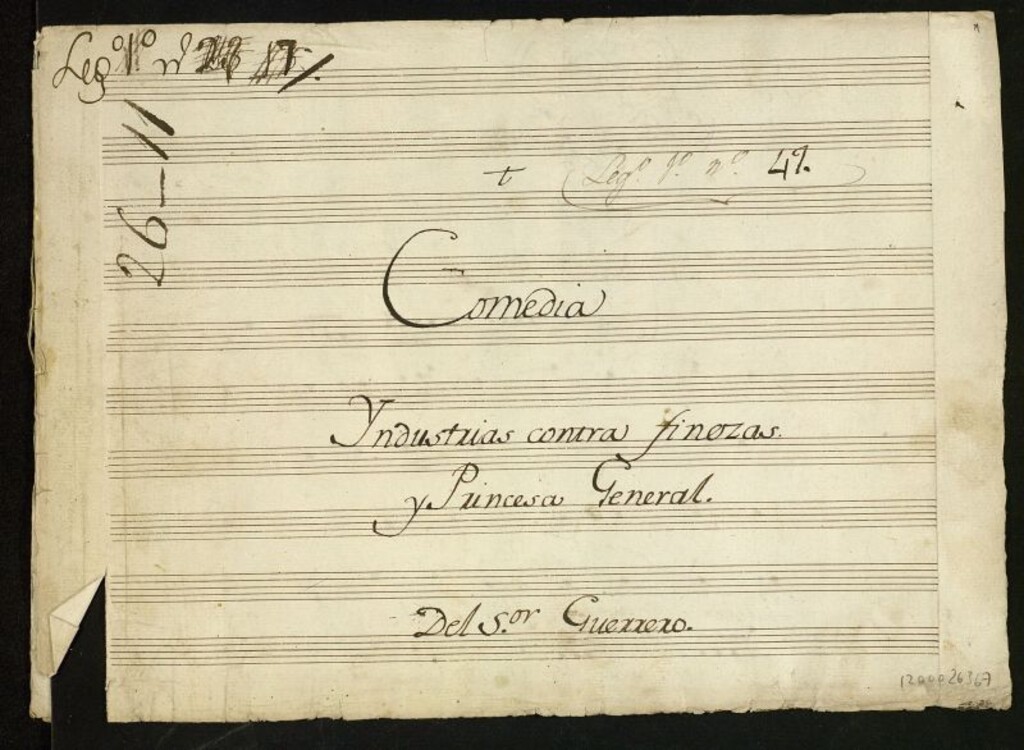 Leg.º 1.º nº 17
26-11
+ Leg.º 1.º nº 47.
Comedia
Yndustrias contra finezas.
y Princesa General.
Del S.or Guerrero.
1200026367